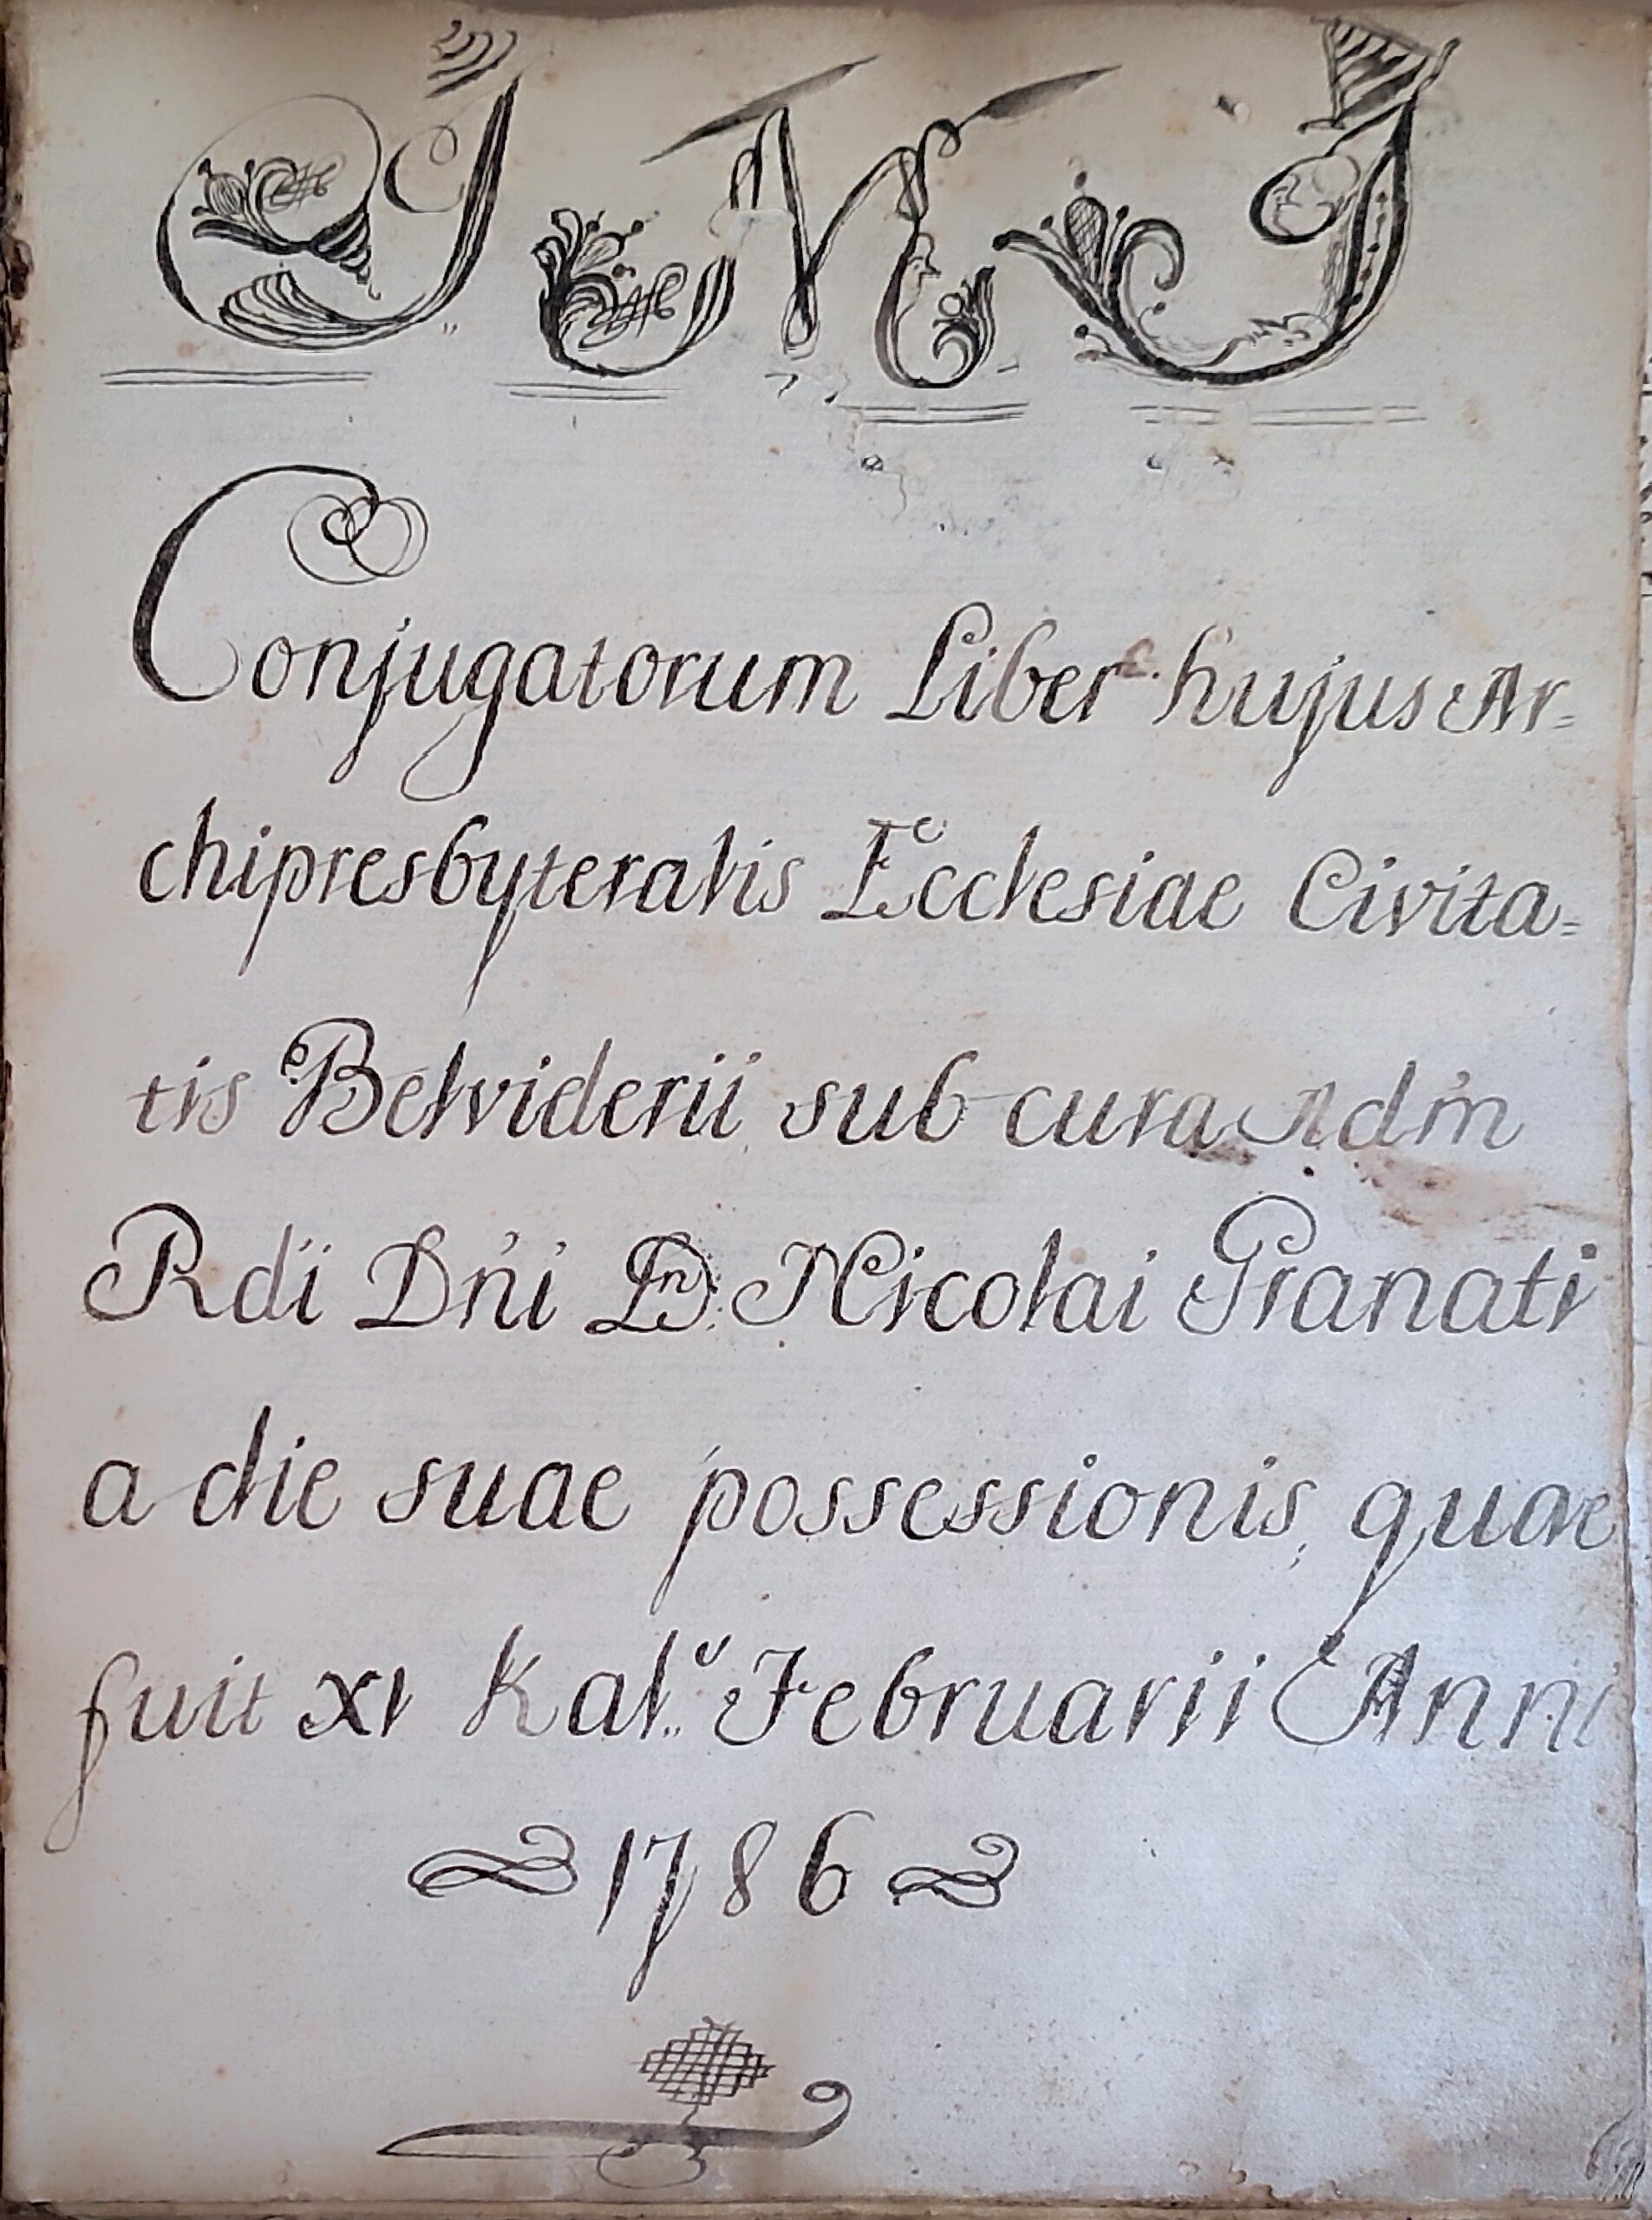 J. M. J.
Conjugatorum Liber hujus Ar=
chipresbyteralis Ecclesiae Civita=
tis Belviderii sub cura Adm̃
Rdi Dñi Dn: Nicolai Granati
a die suae possessionis, quae
fuit XI Kal. Februarii Anni
1786